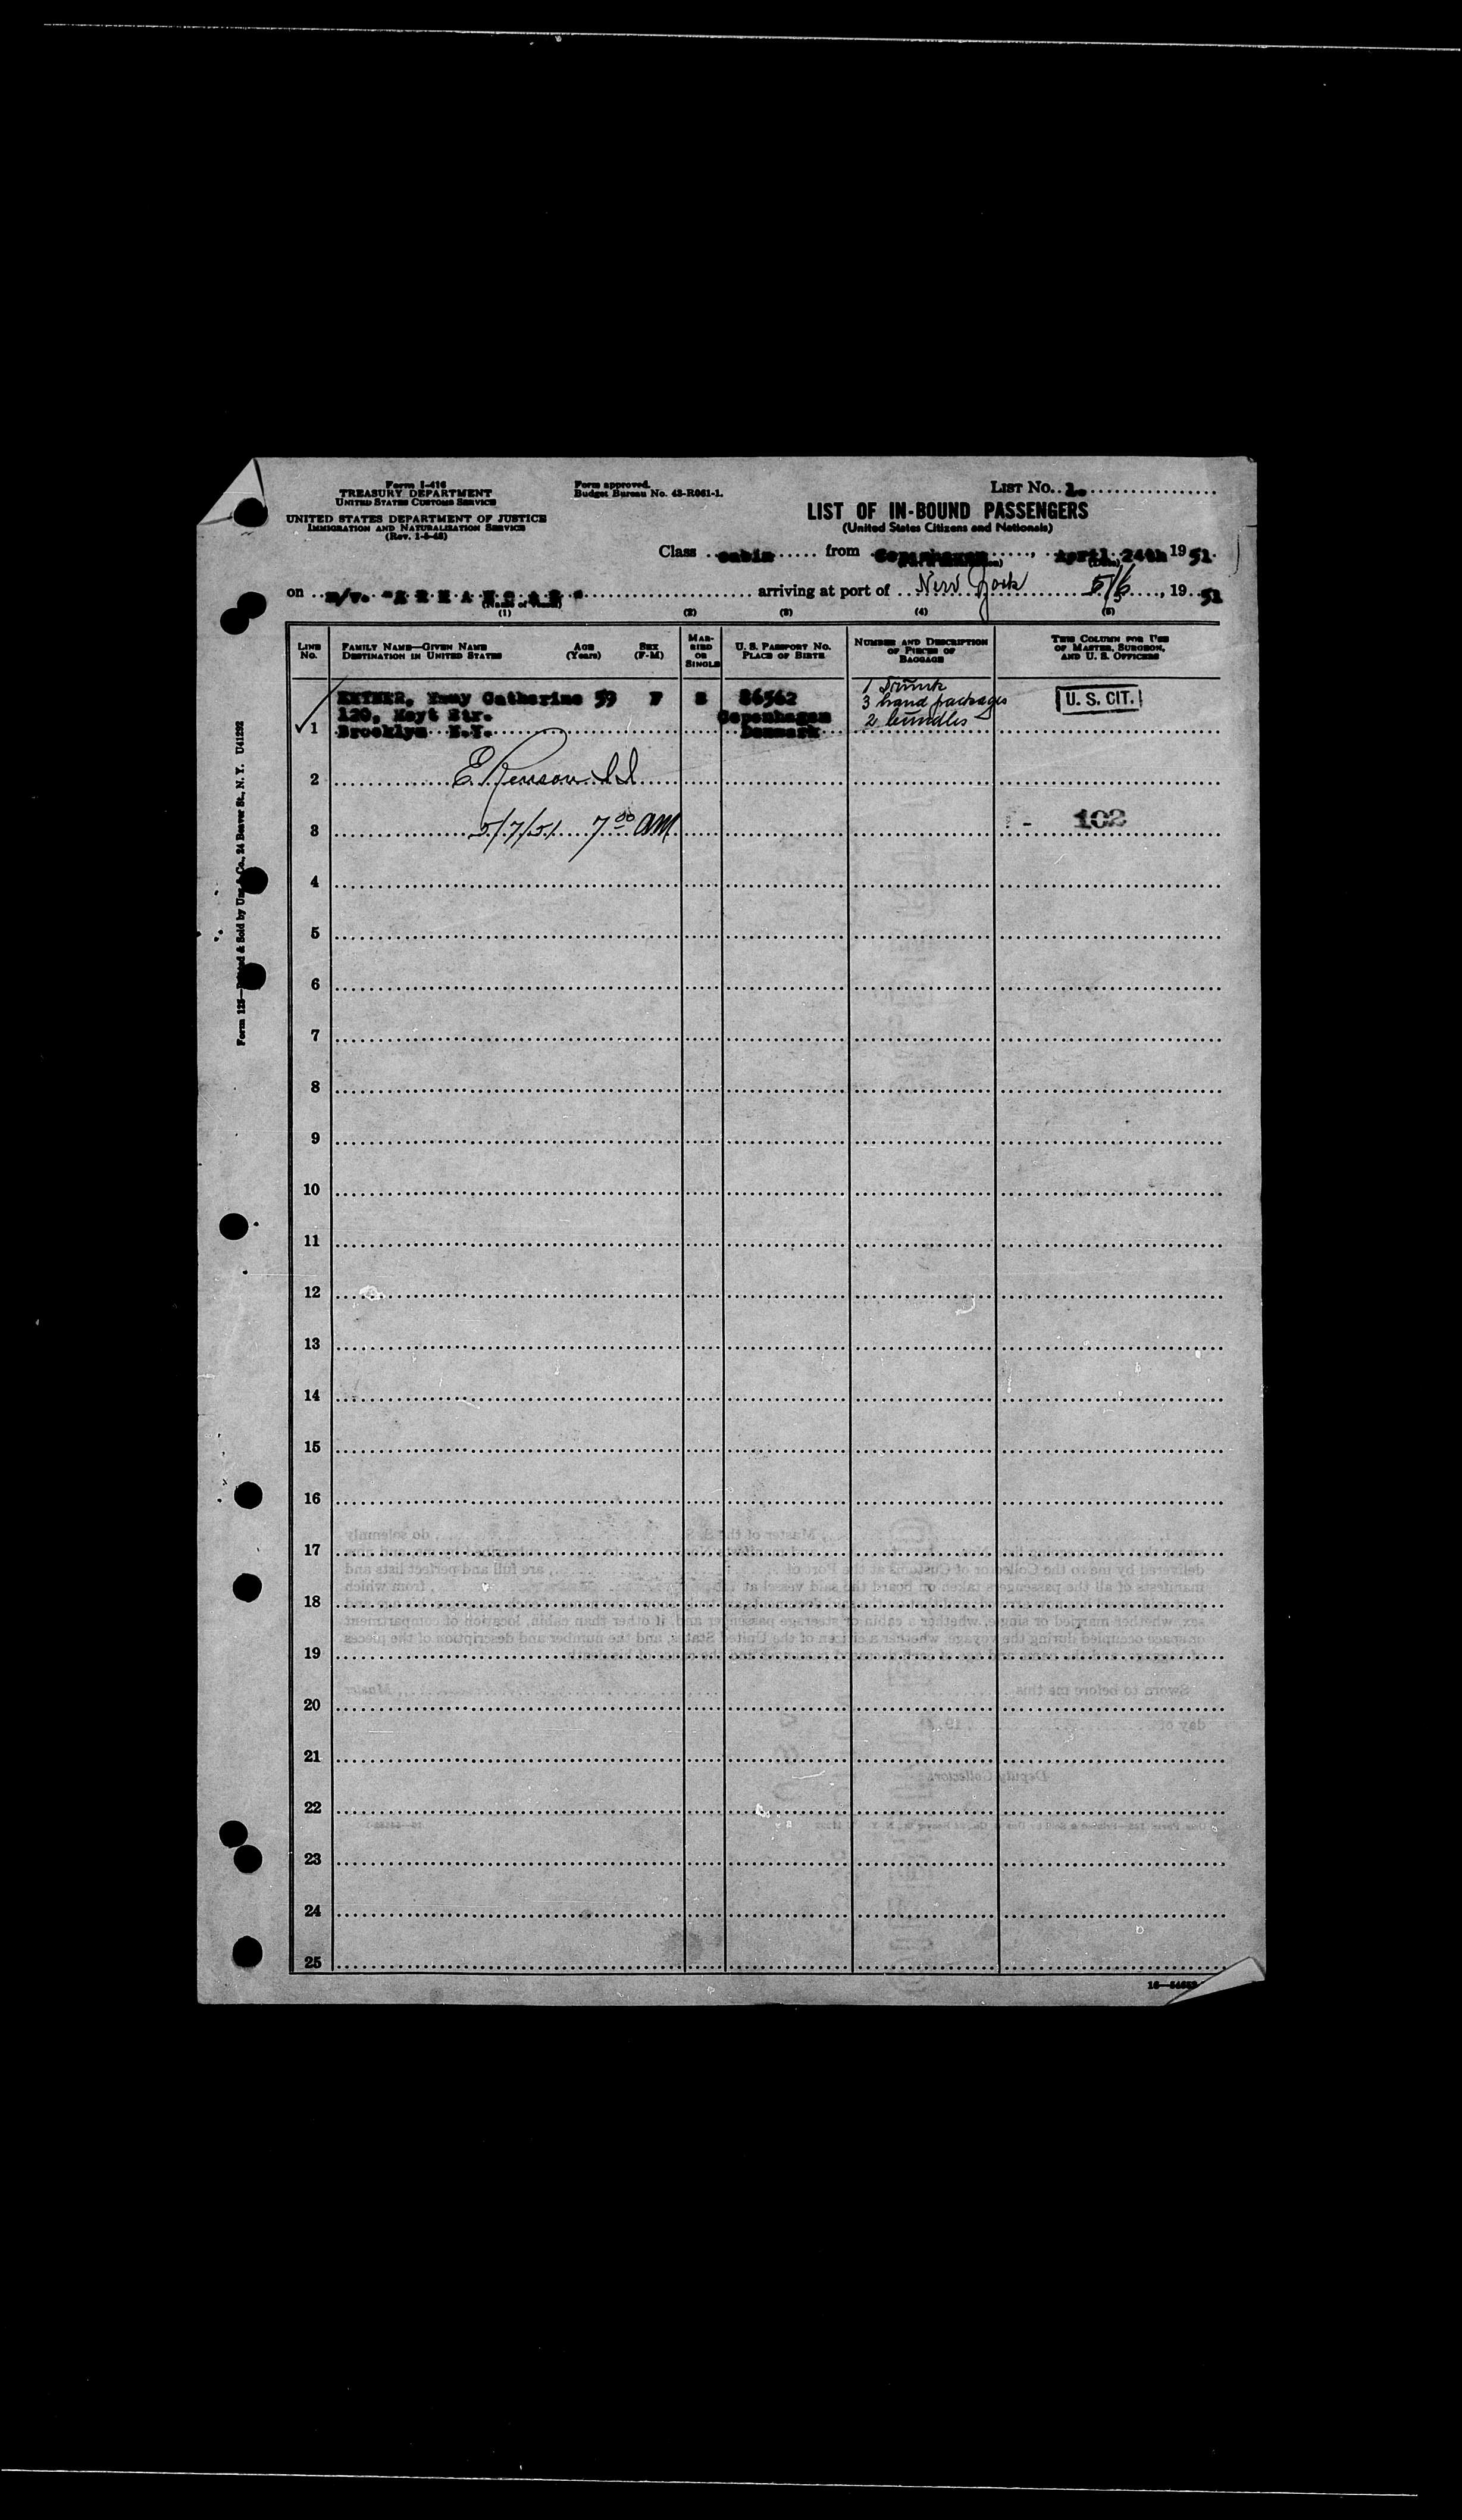 Form I-416
TREASURY DEPARTMENT
UNITED STATES CUSTOMS SERVICE
UNITED STATES DEPARTMENT OF JUSTICE
IMMIGRATION AND NATURALIZATION SERVICE
(Rev. 1-5-48)
Form approved.
Budget Bureau No. 43-R061-1.
LIST No. 1.
LIST OF IN-BOUND PASSENGERS
(United States Citizens and Nationals)
Class cabin from Copenhagen, April 24th 1951.
on m/v. arriving at port of New York 5/6, 1951
(Name of Vessel)
(1) (2) (3) (4) (5)
LINE No. FAMILY NAME—GIVEN NAME DESTINATION IN UNITED STATES AGE (Years) SEX (F-M) MARRIED OR SINGLE U. S. PASSPORT NO. PLACE OF BIRTH NUMBER AND DESCRIPTION OF PIECES OF BAGGAGE THIS COLUMN FOR USE OF MASTER, SURGEON, AND U. S. OFFICERS
1 Catherine 59 F S 86562 1 Trunk U. S. CIT.
120, Hoyt Str. Copenhagen 3 hand packages
Brooklyn N.Y. Denmark 2 bundles
2 E.
3 5/7/51 7 00 AM - 102
4
5
6
7
8
9
10
11
12
13
14
15
16
17
18
19
20
21
22
23
24
25
Form 125—Printed & Sold by Co., 24 Beaver St., N. Y. U41292